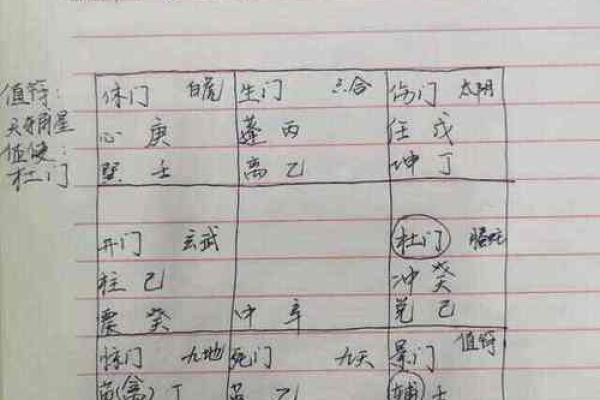 值符：
天辅星
值使：
杜门
休门 白虎 生门 六合 伤门 太阴
心 庚 蓬 丙 任 戊
巽 壬 离 乙 坤 丁
开门 玄武 杜门 螣蛇
柱 己 冲 癸
震 癸 中 辛 兑 己
惊门 九地 死门 九天 景门 值符
芮(禽) 丁 英 乙 辅 壬